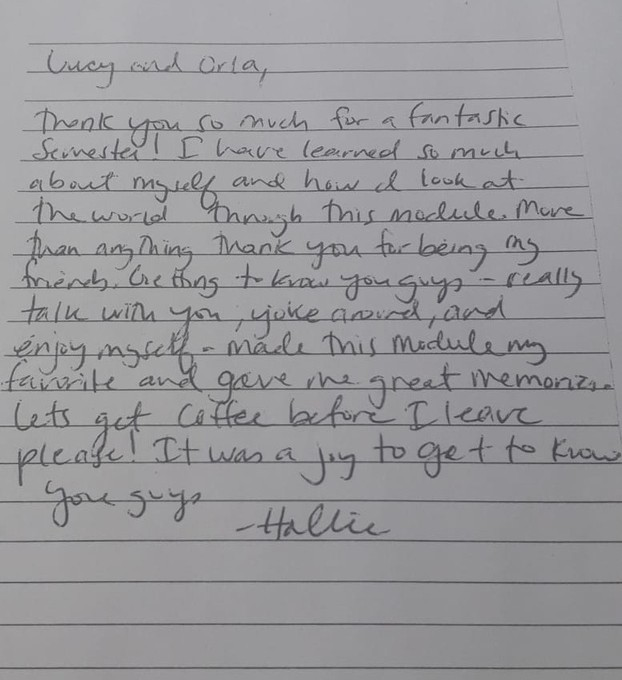 Lucy and Orla,
Thank you so much for a fantastic
semester! I have learned so much
about myself and how I look at
the world through this module. More
than anything thank you for being my
friends. Getting to know you guys - really
talk with you, yoke around, and
enjoy myself - made this module my
favorite and gave me great memories.
Lets get coffee before I leave
please! It was a joy to get to know
you guys
-Hallie